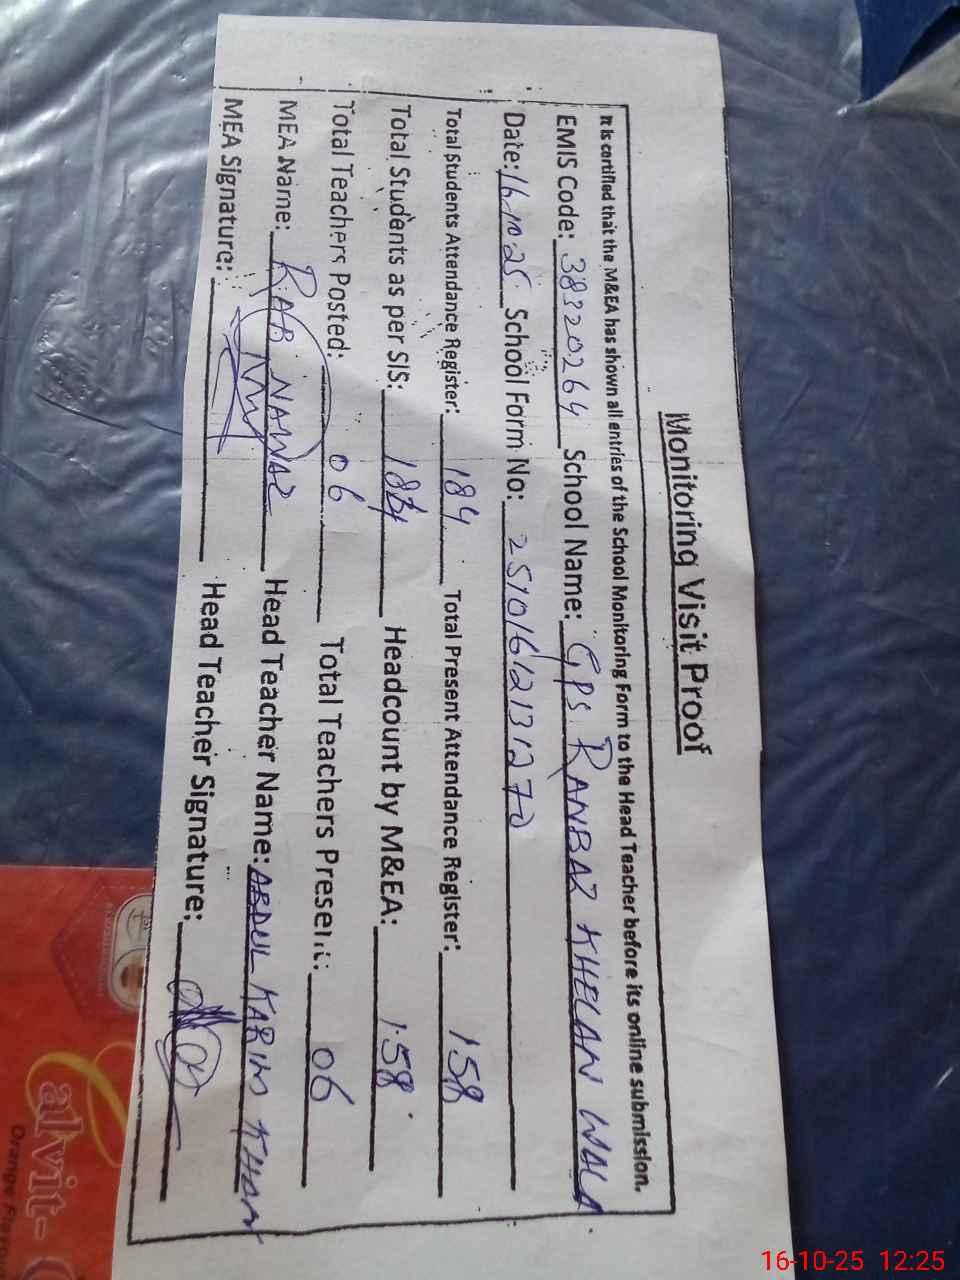 Monitoring Visit Proof
It is certified that the M&EA has shown all entries of the School Monitoring Form to the Head Teacher before its online submission.
EMIS Code: 38320264 School Name: GPS RANBAZ KHELAN WALA
Date: 16-10-25 School Form No: 25101612131270
Total Students Attendance Register: 184 Total Present Attendance Register: 158
Total Students as per SIS: 184 Headcount by M&EA: 158
Total Teachers Posted: 06 Total Teachers Present: 06
MEA Name: RAB NAWAZ Head Teacher Name: ABDUL KARIM KHAN
MEA Signature: Head Teacher Signature:
Calvit-C
Orange
16-10-25 12:25